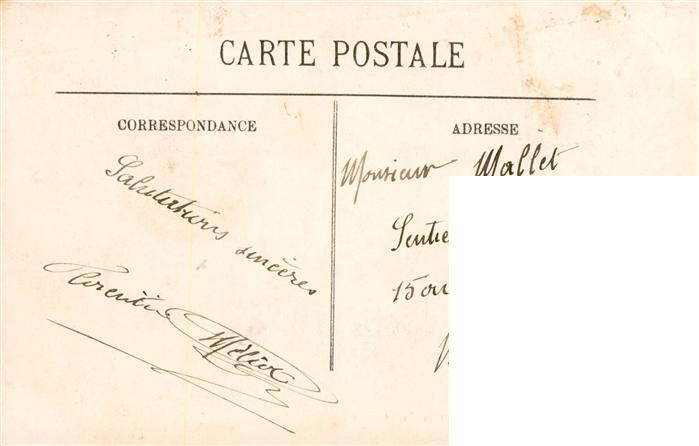 CARTE POSTALE
CORRESPONDANCE
Salutations sincères
Florentine
ADRESSE
Monsieur Mallet